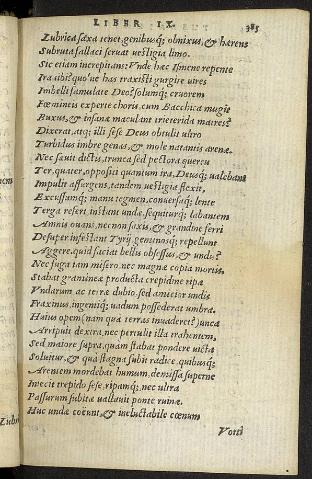 LIBER IX.
385
Lubrica saxa tenet, genibusq; obnixus, & haerens
Subruta fallaci seruat uestigia limo.
Sic etiam increpitans: Vnde haec Ismene repente
Ira tibi? quo'ue has traxisti gurgite uires
Imbelli famulate Deo? solumq; cruorem
Foemineis experte choris, cum Bacchica mugit
Buxus, & insanae maculant trieterida matres?
Dixerat, atq; illi sese Deus obtulit ultro
Turbidus imbre genas, & mole natantis arenae.
Nec saeuit dictis, trunca sed pectora quercu
Ter, quater, opposita quantum ira, Deusq; ualebant
Impulit assurgens, tandem uestigia flexit,
Excussamq; manu tegmen, conuersaq; lente
Terga refert, instant undae, sequiturq; labantem
Amnis ouans, nec non saxis, & grandine ferri
Desuper infestant Tyrij, geminoq; repellunt
Aggere, quid faciat bellis obsessus, & undis?
Nec fuga iam misero, nec magnae copia mortis,
Stabat gramineae producta crepidine ripae
Vndarum ac terrae dubio, sed amicior undis
Fraxinus, ingentiq; uadum possederat umbra.
Huius opem (nam qua terras inuaderet?) unca
Arripuit dextra, nec pertulit illa trahentem,
Sed maiore supra, quam stabat pondere uicta
Soluitur, & qua stagna subit radice, quibusq;
Arentem mordebat humum, demissa superne
Iniecit trepido sese, ripamq;, nec ultra
Passurum subitae uallauit ponte ruinae.
Huc undae coëunt, & ineluctabile coenum
Vorti